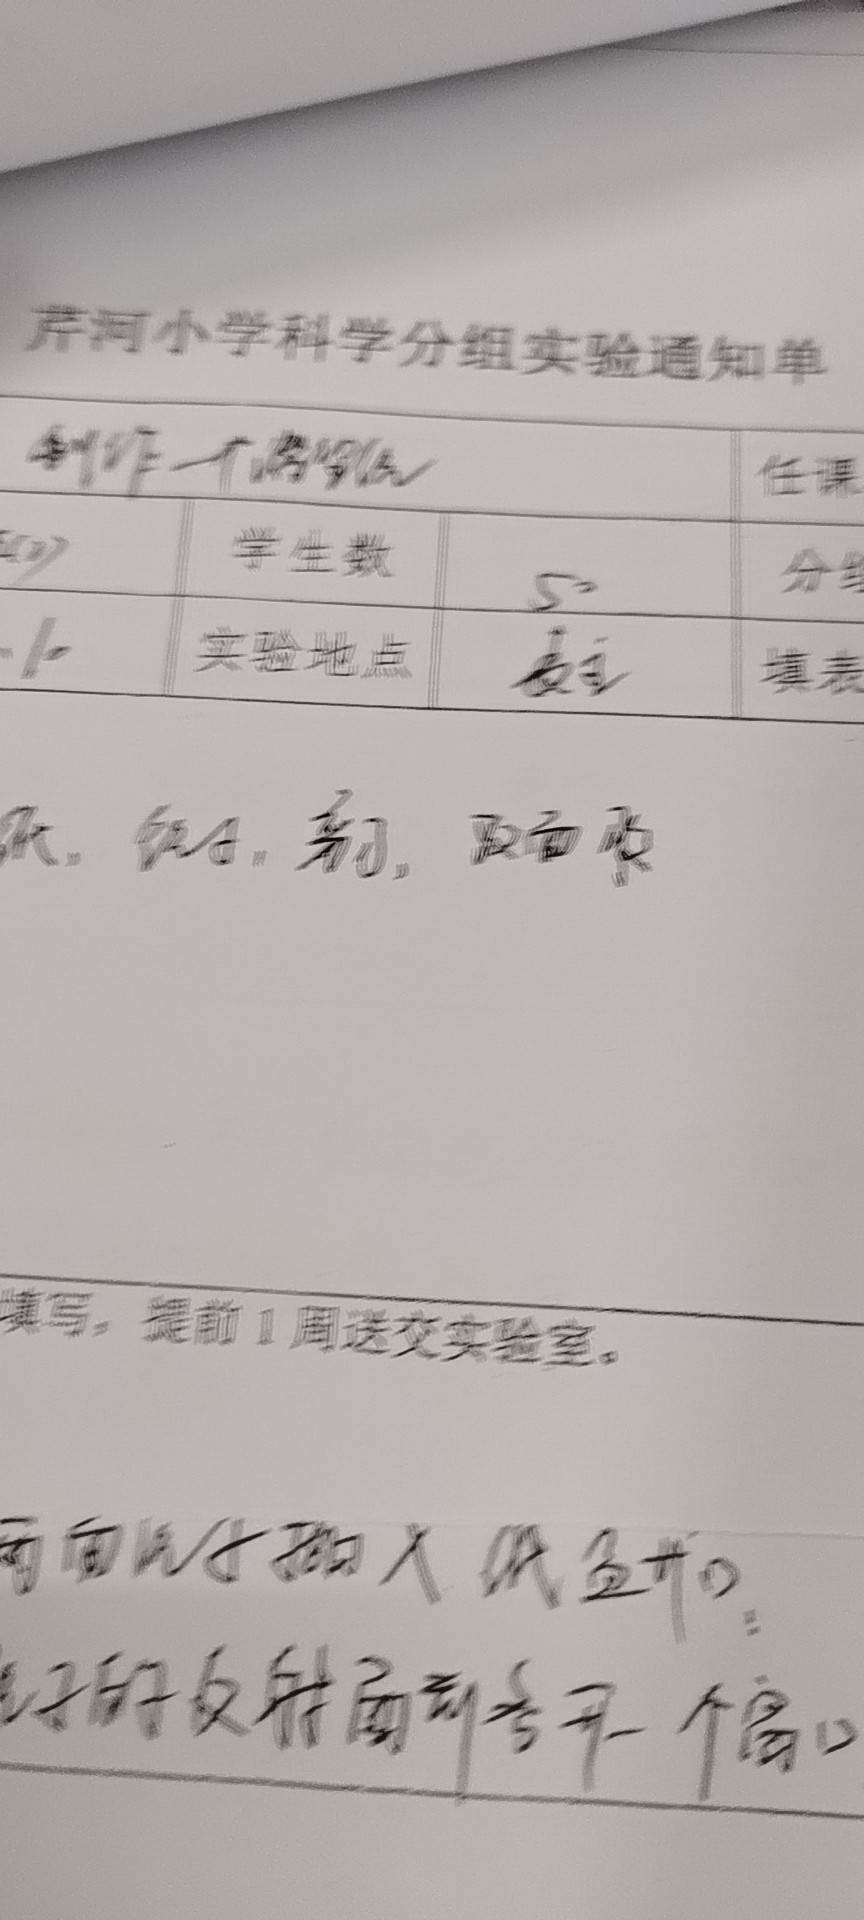 芹河小学科学分组实验通知单
制作一个潜望镜 任课
学生数 50 分组
实验地点 教室 填表
纸, 镜子, 剪刀, 双面胶
填写，提前1周送交实验室。
两面镜子插入纸盒开口
镜子的反射面剪去开一个窗口